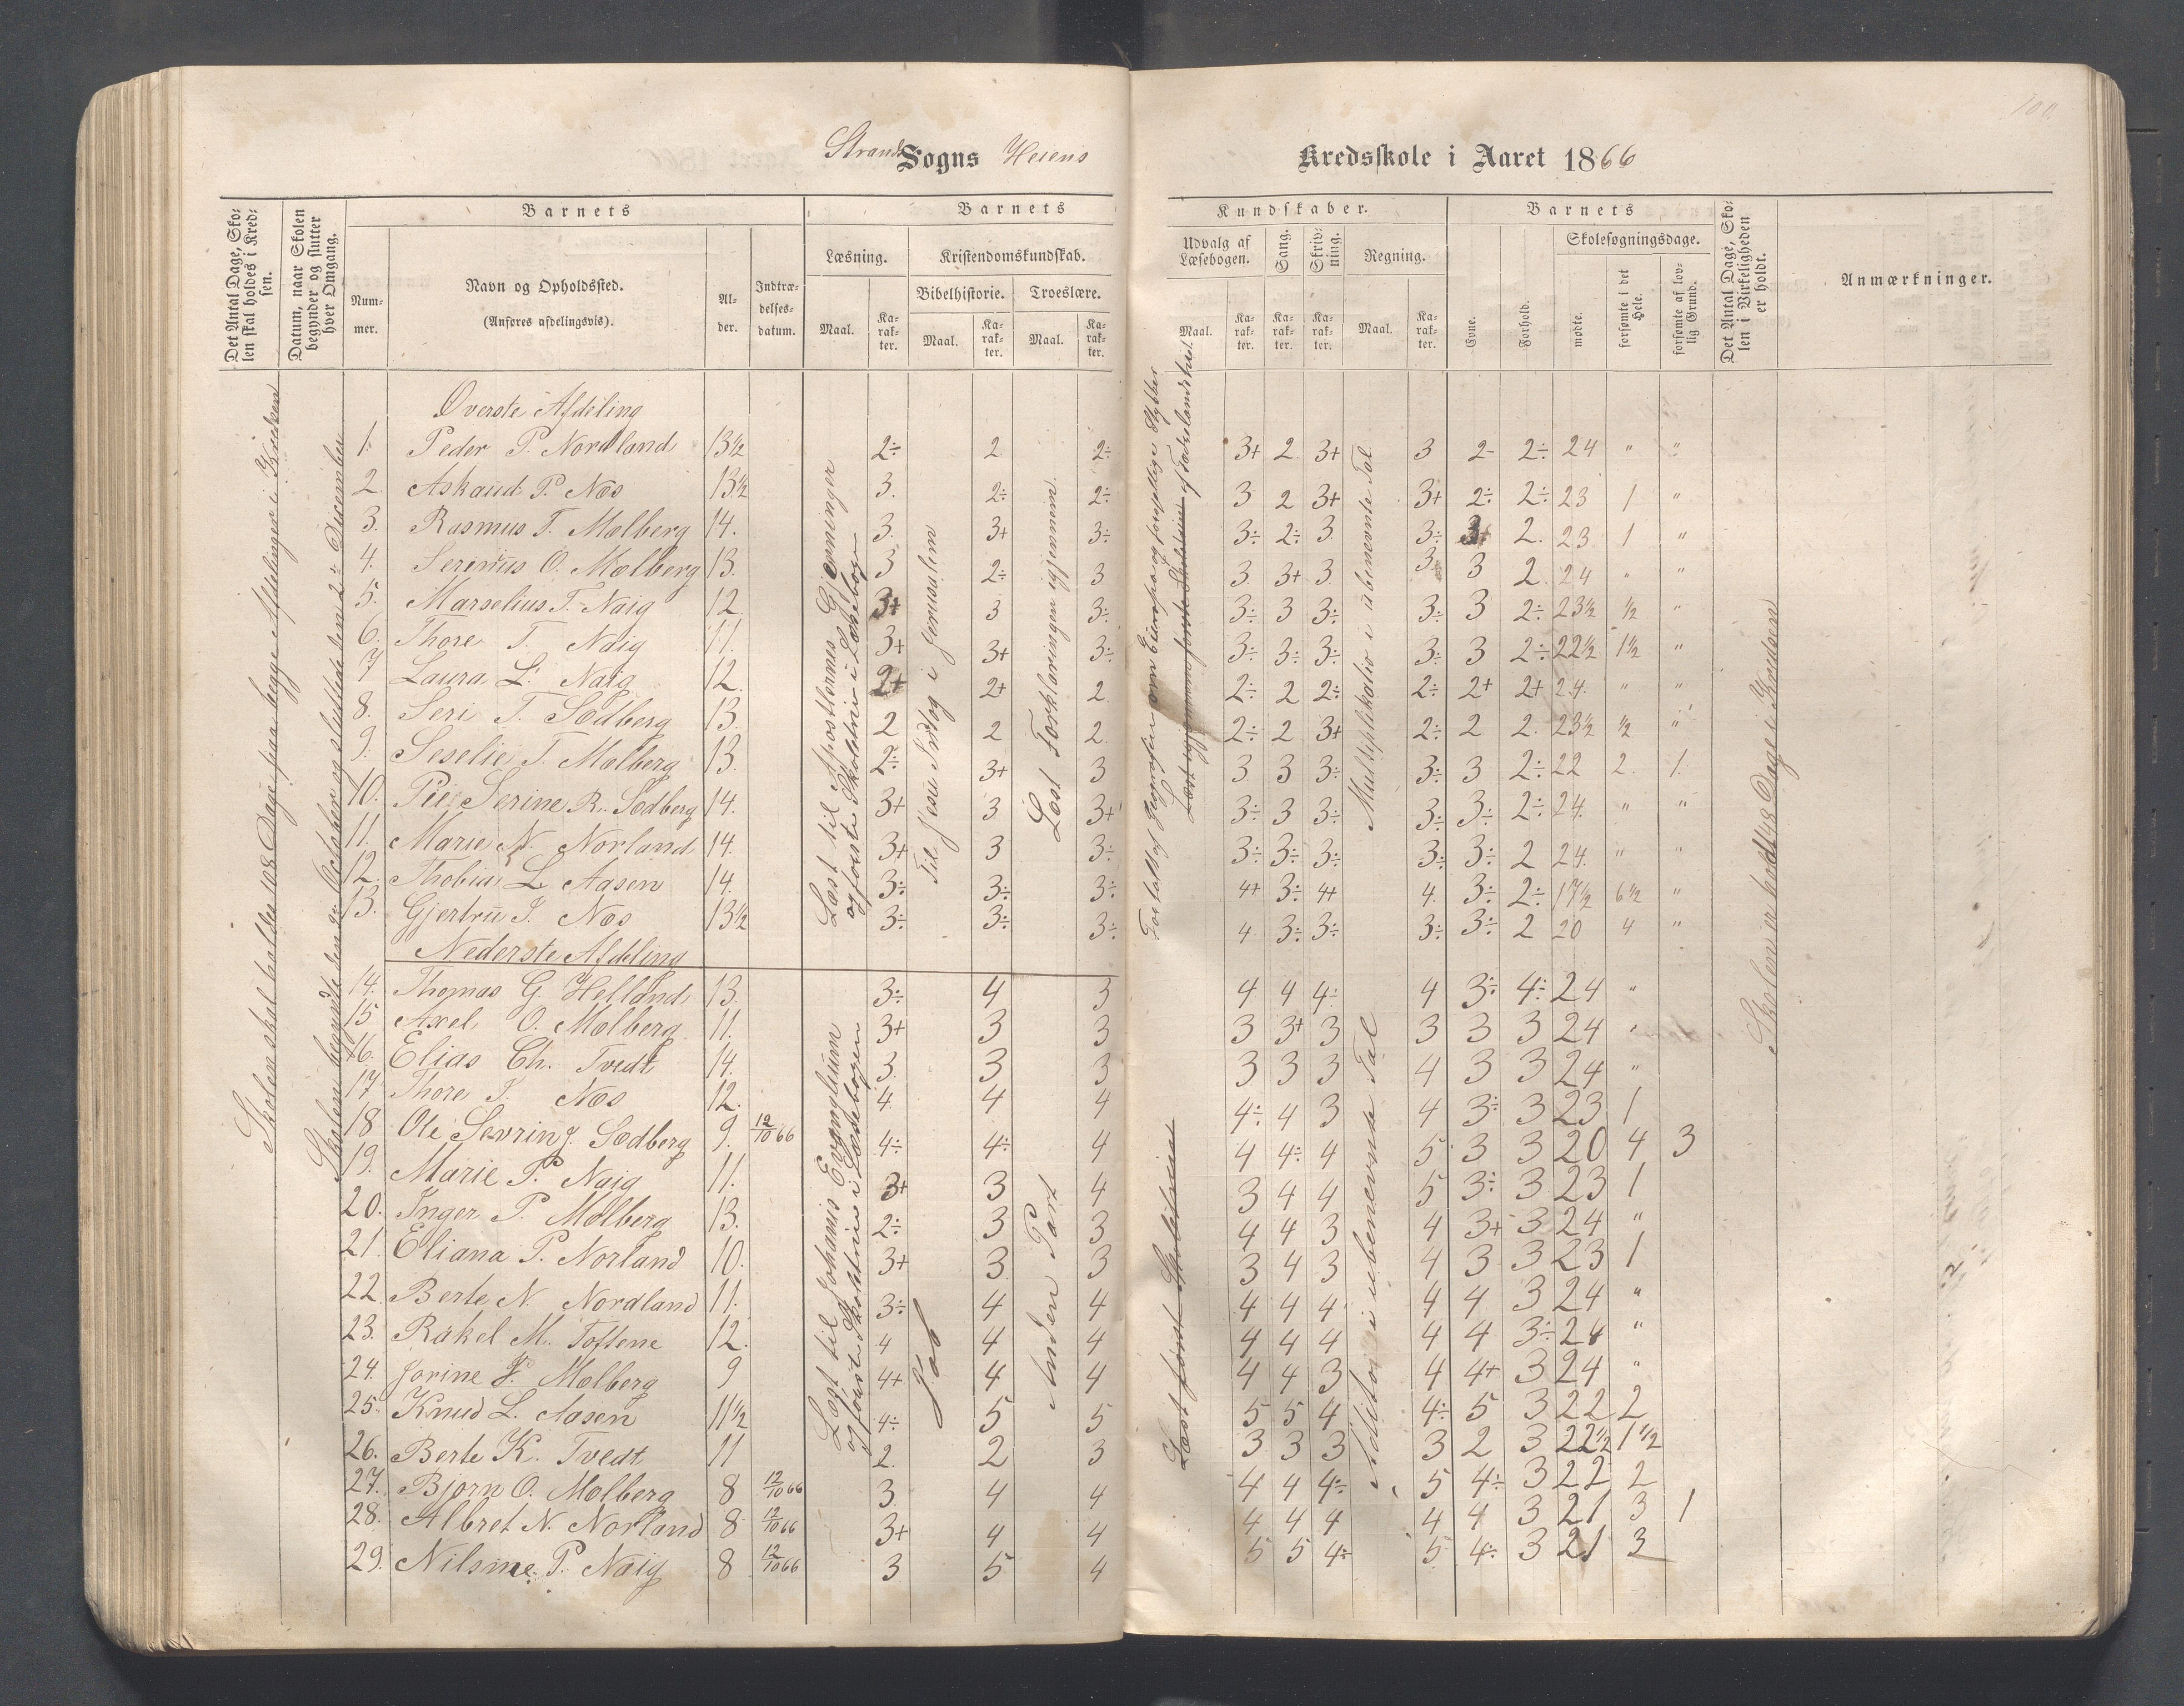 100
Strands Sogns Heiens Kredsskole i Aaret 1866
Det Antal Dage, Skolen skal holdes i Kredsen.
Datum, naar Skolen begynder og slutter hver Omgang.
Barnets
Nummer.
Navn og Opholdssted.
(Anføres afdelingsvis).
Alder.
Indtrædelsesdatum.
Barnets
Læsning.
Maal.
Karakter.
Kristendomskundskab.
Bibelhistorie.
Maal.
Karakter.
Troeslære.
Maal.
Karakter.
Kundskaber.
Udvalg af Læsebogen.
Maal.
Karakter.
Sang.
Karakter.
Skrivning.
Karakter.
Regning.
Maal.
Karakter.
Barnets
Evne.
Forhold.
Skolesøgningsdage.
mødte.
forsømte i det Hele.
forsømte af lovlig Grund.
Det Antal Dage, Skolen i Virkeligheden er holdt.
Anmærkninger.
Skolen skal holdes 108 Dage paa begge Afdelinger i Kredsen
Skolen begyndte den 9de October og sluttede den 2de December
Læst til Apostlernes Gjerninger
og første Skoletrin i Læsebogen
Til Jesu Indtog i Jerusalem
Læst Forklaringen igjennem.
Fortalt af Geografien om Europa og forskjellige Stykker
Læst igjennem første Skoletrin af Fædrelandshist.
Multiplikatio i ubenevnte Tal
Skolen er holdt 48 Dage i Kredsen
Øverste Afdeling
1. Peder P. Nordland 13½ 2÷ 2 2÷ 3+ 2 3+ 3 2- 2÷ 24 " "
2 Askaud P. Næs 13½ 3. 2÷ 2÷ 3 2 3+ 3+ 2÷ 2÷ 23 1 "
3. Rasmus T. Mølberg 14. 3. 3+ 3÷ 3÷ 2÷ 3. 3÷ 3+ 2. 23 1 "
4. Serinius O. Mølberg 13. 3 2÷ 3 3 3+ 3 3. 3 2. 24 " "
5. Marselius T. Naig 12 3+ 3 3÷ 3÷ 3 3÷ 3÷ 3 2÷ 23½ ½ "
6. Thore T. Naig 11. 3+ 3+ 3÷ 3÷ 3÷ 3÷ 3÷ 3 2÷ 22½ 1½ "
7 Laura L. Naig 12. 2+ 2+ 2 2÷ 2 2÷ 2÷ 2+ 2+ 24. " "
8. Seri T. Sødberg 13. 2 2 2. 2÷ 2 3+ 2÷ 2 2. 23½ ½ "
9. Seselie T. Mølberg 13. 2÷ 3+ 3 3 3 3÷ 3÷ 3 2÷ 22 2. 1.
10. Pee Serine R. Sødberg 14. 3+ 3 3+ 3÷ 3 3÷ 3÷ 3÷ 2÷ 24. " "
11. Marie N. Norland 14. 3+ 3 3÷ 3÷ 3÷ 3÷ 3÷ 3÷ 2 24. " "
12. Thobias L. Aasen 14. 3÷ 3÷ 3÷ 4+ 3÷ 4+ 4. 3÷ 2÷ 17½ 6½ "
13. Gjertru J. Næs 13½ 3÷ 3÷ 3÷ 4 3÷ 3÷ 3÷ 3÷ 2 20 4 "
Nederste Afdeling
Lægt til Johanis Evangelium
og første Skoletrin i Læsebogen
Job
Anden Part
Læst først Skoletrin
Aditio i ubenevnte Tal
14. Thomas G. Helland 13. 3÷ 4 3 4 4 4÷ 4 3÷ 4÷ 24 "
15 Axel O. Mølberg 11. 3+ 3 3 3 3+ 3 3 3 3 24 "
16. Elias Ch. Tvedt 14. 3. 3 3 3 3 3 4 3 3 24 "
17 Thore J. Næs 12. 4. 4 4 4÷ 4 3 4 3÷ 3 23 1
18 Ole Sevrin J. Sødberg 9. 12/10 66 4÷ 4÷ 4 4 4÷ 4 5 3 3 20 4 3
19. Marie P. Naig 11. 3+ 3 4 3 4 4 5 3÷ 3 23 1
20. Inger P. Mølberg 13. 2÷ 3 3 4 4 3 4 3+ 3 24 "
21. Eliana P. Norland 10. 3+ 3 3 3 4 3 4 3 3 23 1
22. Berte N. Nordland 11. 3÷ 4 4 4 4 4 4 4 3 24 "
23. Rakel M. Toftene 12. 4 4 4 4 4 4 4 4 3÷ 24 "
24. Jorine J. Mølberg 9 4+ 4 4 4 4 3 4 4+ 3 24 "
25. Knud L. Aasen 11½ 4÷ 5 5 5 5 4 4÷ 5 3 22 2
26. Berte K. Tvedt 11 2. 2 3 3 3 3 3 2 3 22½ 1½
27. Bjørn O. Mølberg 8 12/10 66 3. 4 4 4 4 4÷ 5 4÷ 3 22 2
28. Albret N. Norland 8 12/10 66 3+ 4 4 4 4 4 4 4 3 21 3 1
29. Nilsine P. Naig 8 12/10 66 3 5 4 5 5 4÷ 5 4÷ 3 21 3